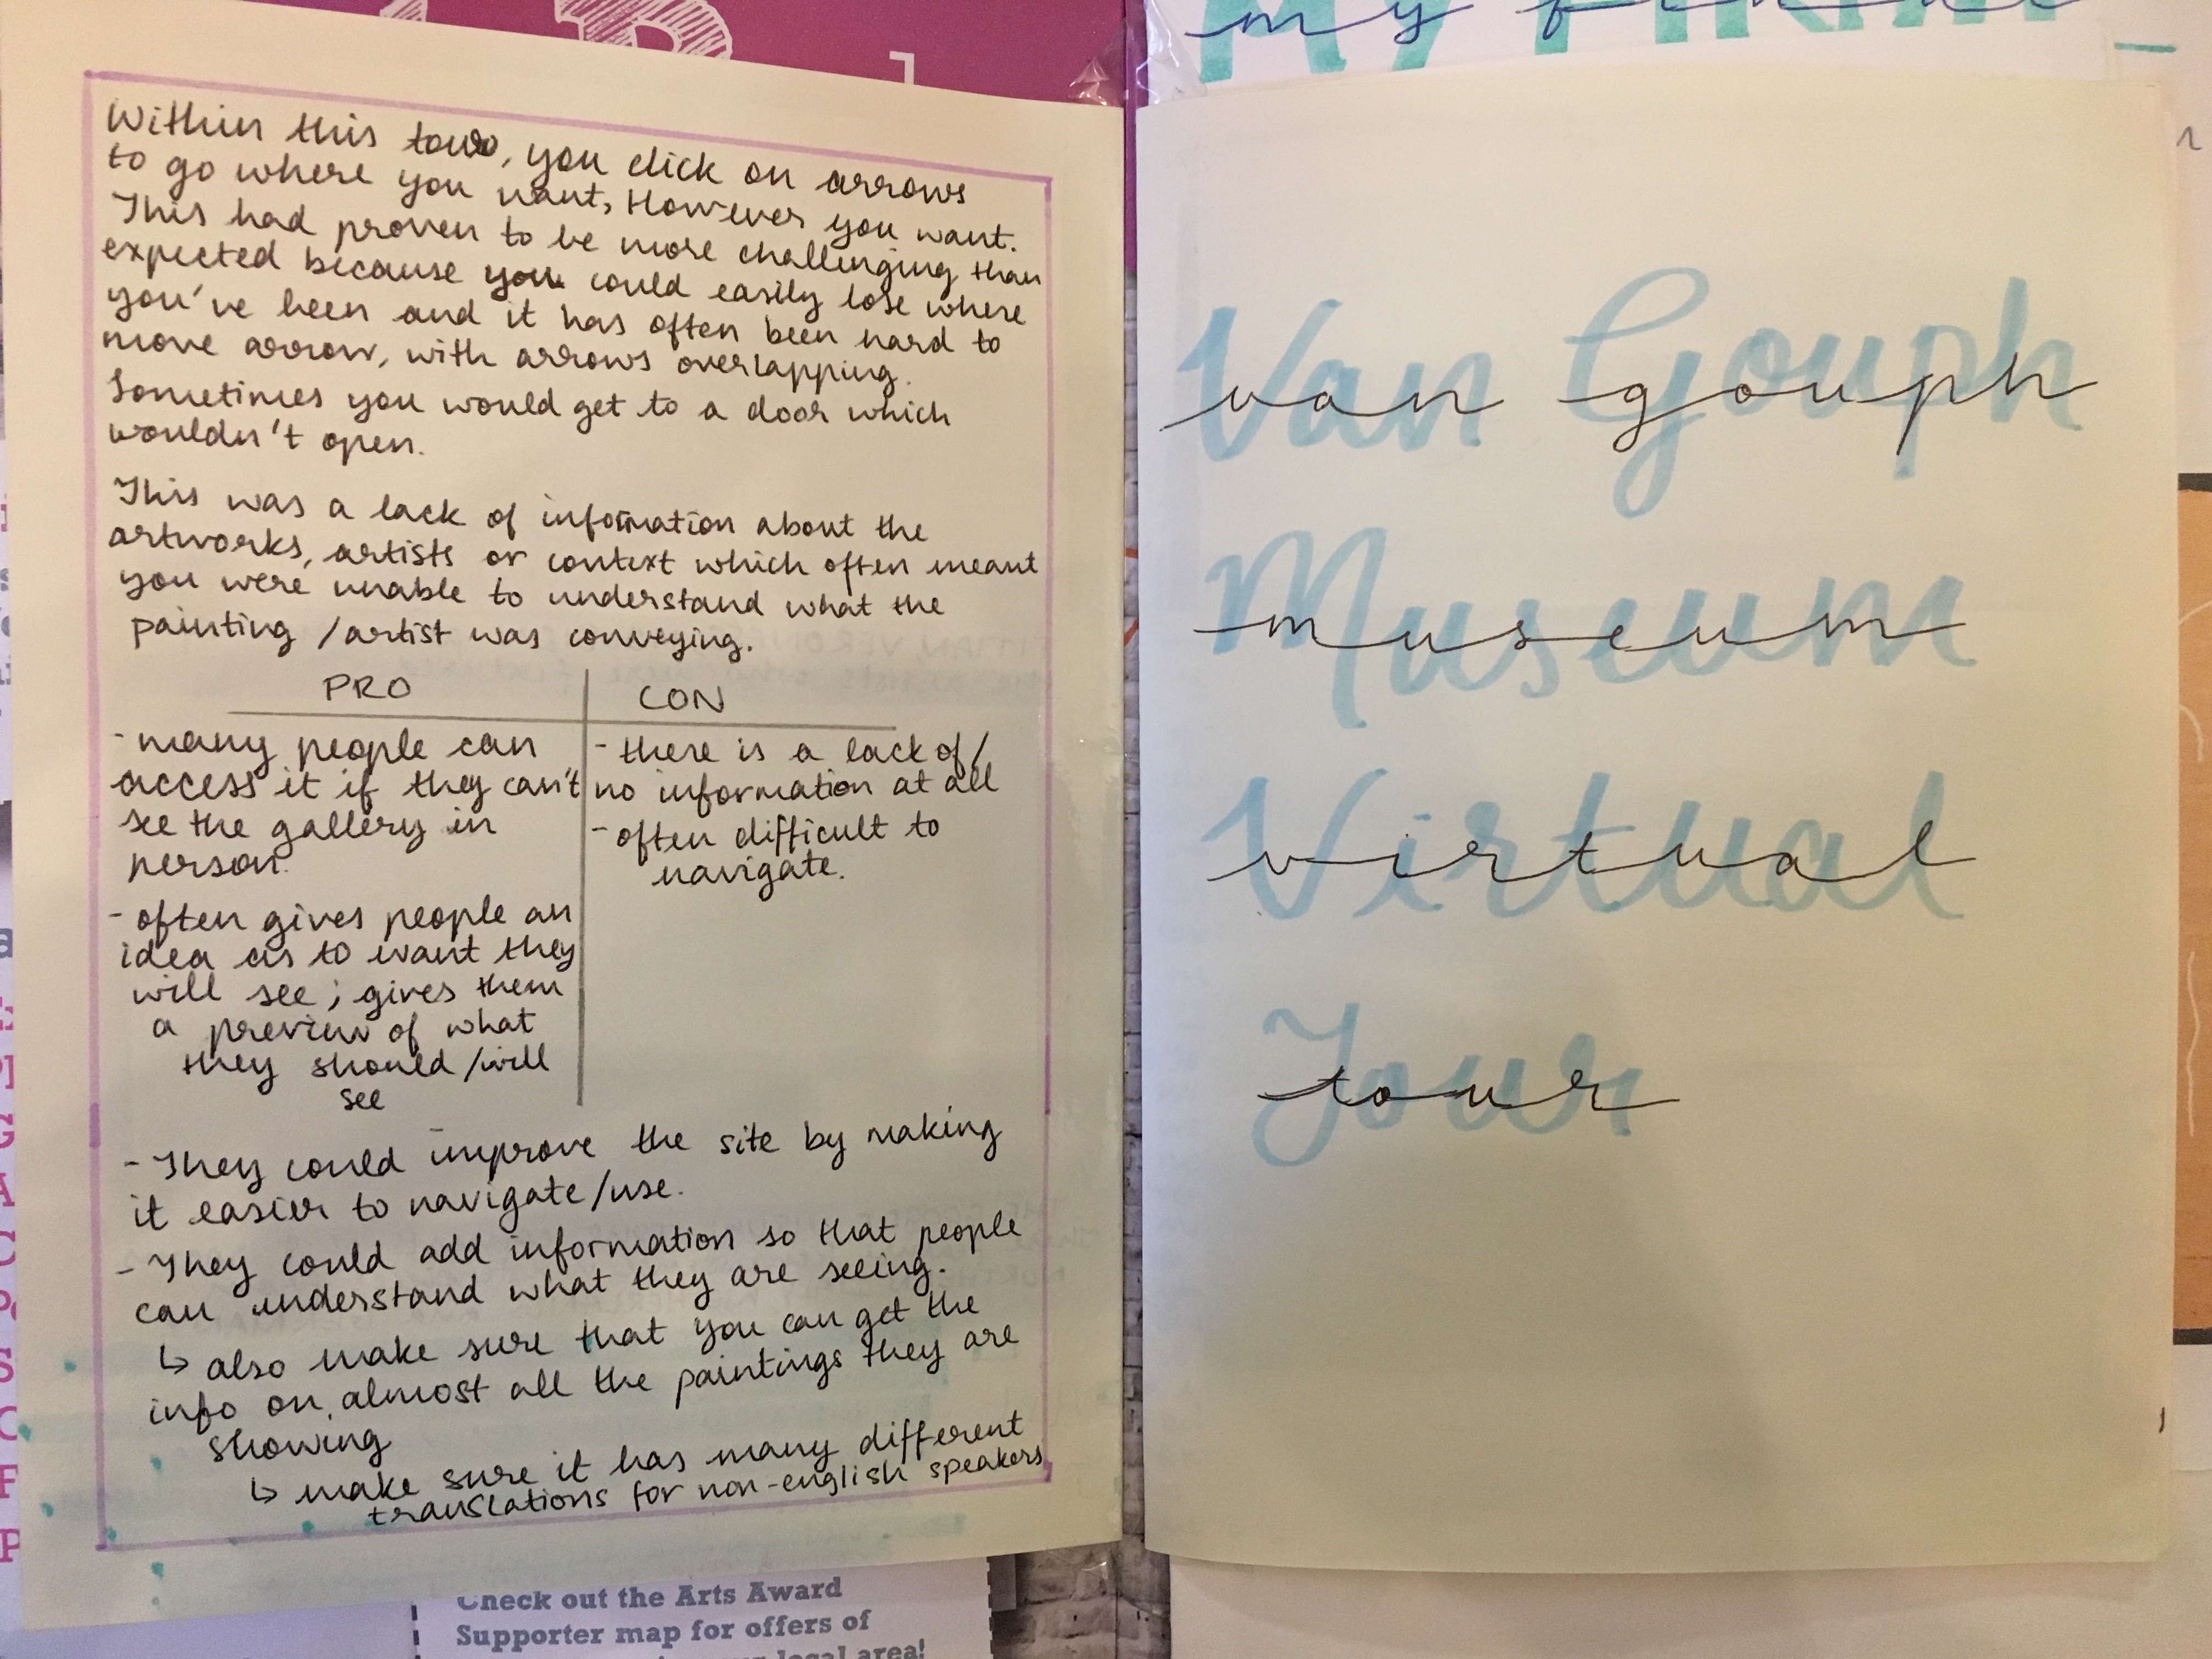 Within this tour, you click on arrows
to go where you want, However you want.
This had proven to be more challenging than
expected because you could easily lose where
you've been and it has often been hard to
move arrow, with arrows overlapping.
Sometimes you would get to a door which
wouldn't open.
This was a lack of information about the
artworks, artists or context which often meant
you were unable to understand what the
painting /artist was conveying.
PRO
- many people can
access it if they can't
see the gallery in
person.
- often gives people an
idea as to want they
will see; gives them
a preview of what
they should /will
see
CON
- there is a lack of/
no information at all
- often difficult to
navigate.
- They could improve the site by making
it easier to navigate/use.
- They could add information so that people
can understand what they are seeing.
↳ also make sure that you can get the
info on, almost all the paintings they are
showing
↳ make sure it has many different
translations for non-english speakers
Check out the Arts Award
Supporter map for offers of
local area!
my
MY
Van Gouph
van gouph
Museum
museum
Virtual
virtual
Tour
tour